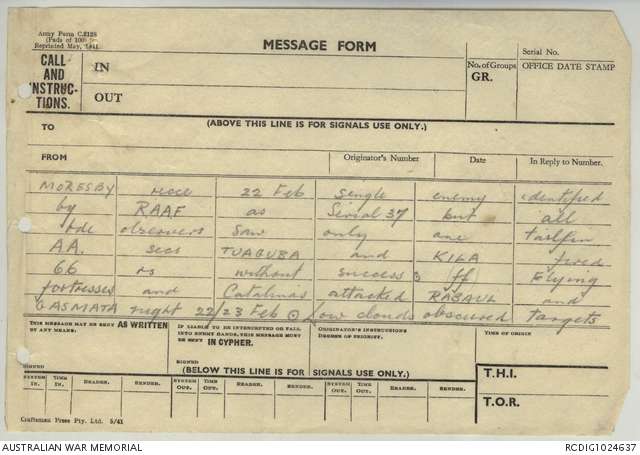 Army Form C.2128
(Pads of 100)
Reprinted May, 1941.
MESSAGE FORM
Serial No.
CALL
AND
INSTRUC-
TIONS.
IN
OUT
No. of Groups
GR.
OFFICE DATE STAMP
(ABOVE THIS LINE IS FOR SIGNALS USE ONLY.)
TO
FROM
Originator's Number
Date
In Reply to Number.
MORESBY recce 22 Feb single enemy identified
by RAAF as Serial 37 but all
bde observers saw only one tailfin
AA. secs TUAGUBA and KILA fired
66 rs without success ff Flying
fortresses and Catalinas attacked RABAUL and
GASMATA night 22/23 Feb low clouds obscured targets
THIS MESSAGE MAY BE SENT AS WRITTEN
BY ANY MEANS.
SIGNED
IF LIABLE TO BE INTERCEPTED OR FALL
INTO ENEMY HANDS, THIS MESSAGE MUST
BE SENT IN CIPHER.
SIGNED
ORIGINATOR'S INSTRUCTIONS
DEGREE OF PRIORITY.
TIME OF ORIGIN
(BELOW THIS LINE IS FOR SIGNALS USE ONLY.)
T.H.I.
T.O.R.
SYSTEM IN. TIME IN. READER. SENDER. SYSTEM OUT. TIME OUT. READER. SENDER. SYSTEM OUT. TIME OUT. READER. SENDER.
Craftsman Press Pty. Ltd. 5/41
AUSTRALIAN WAR MEMORIAL
RCDIG1024637